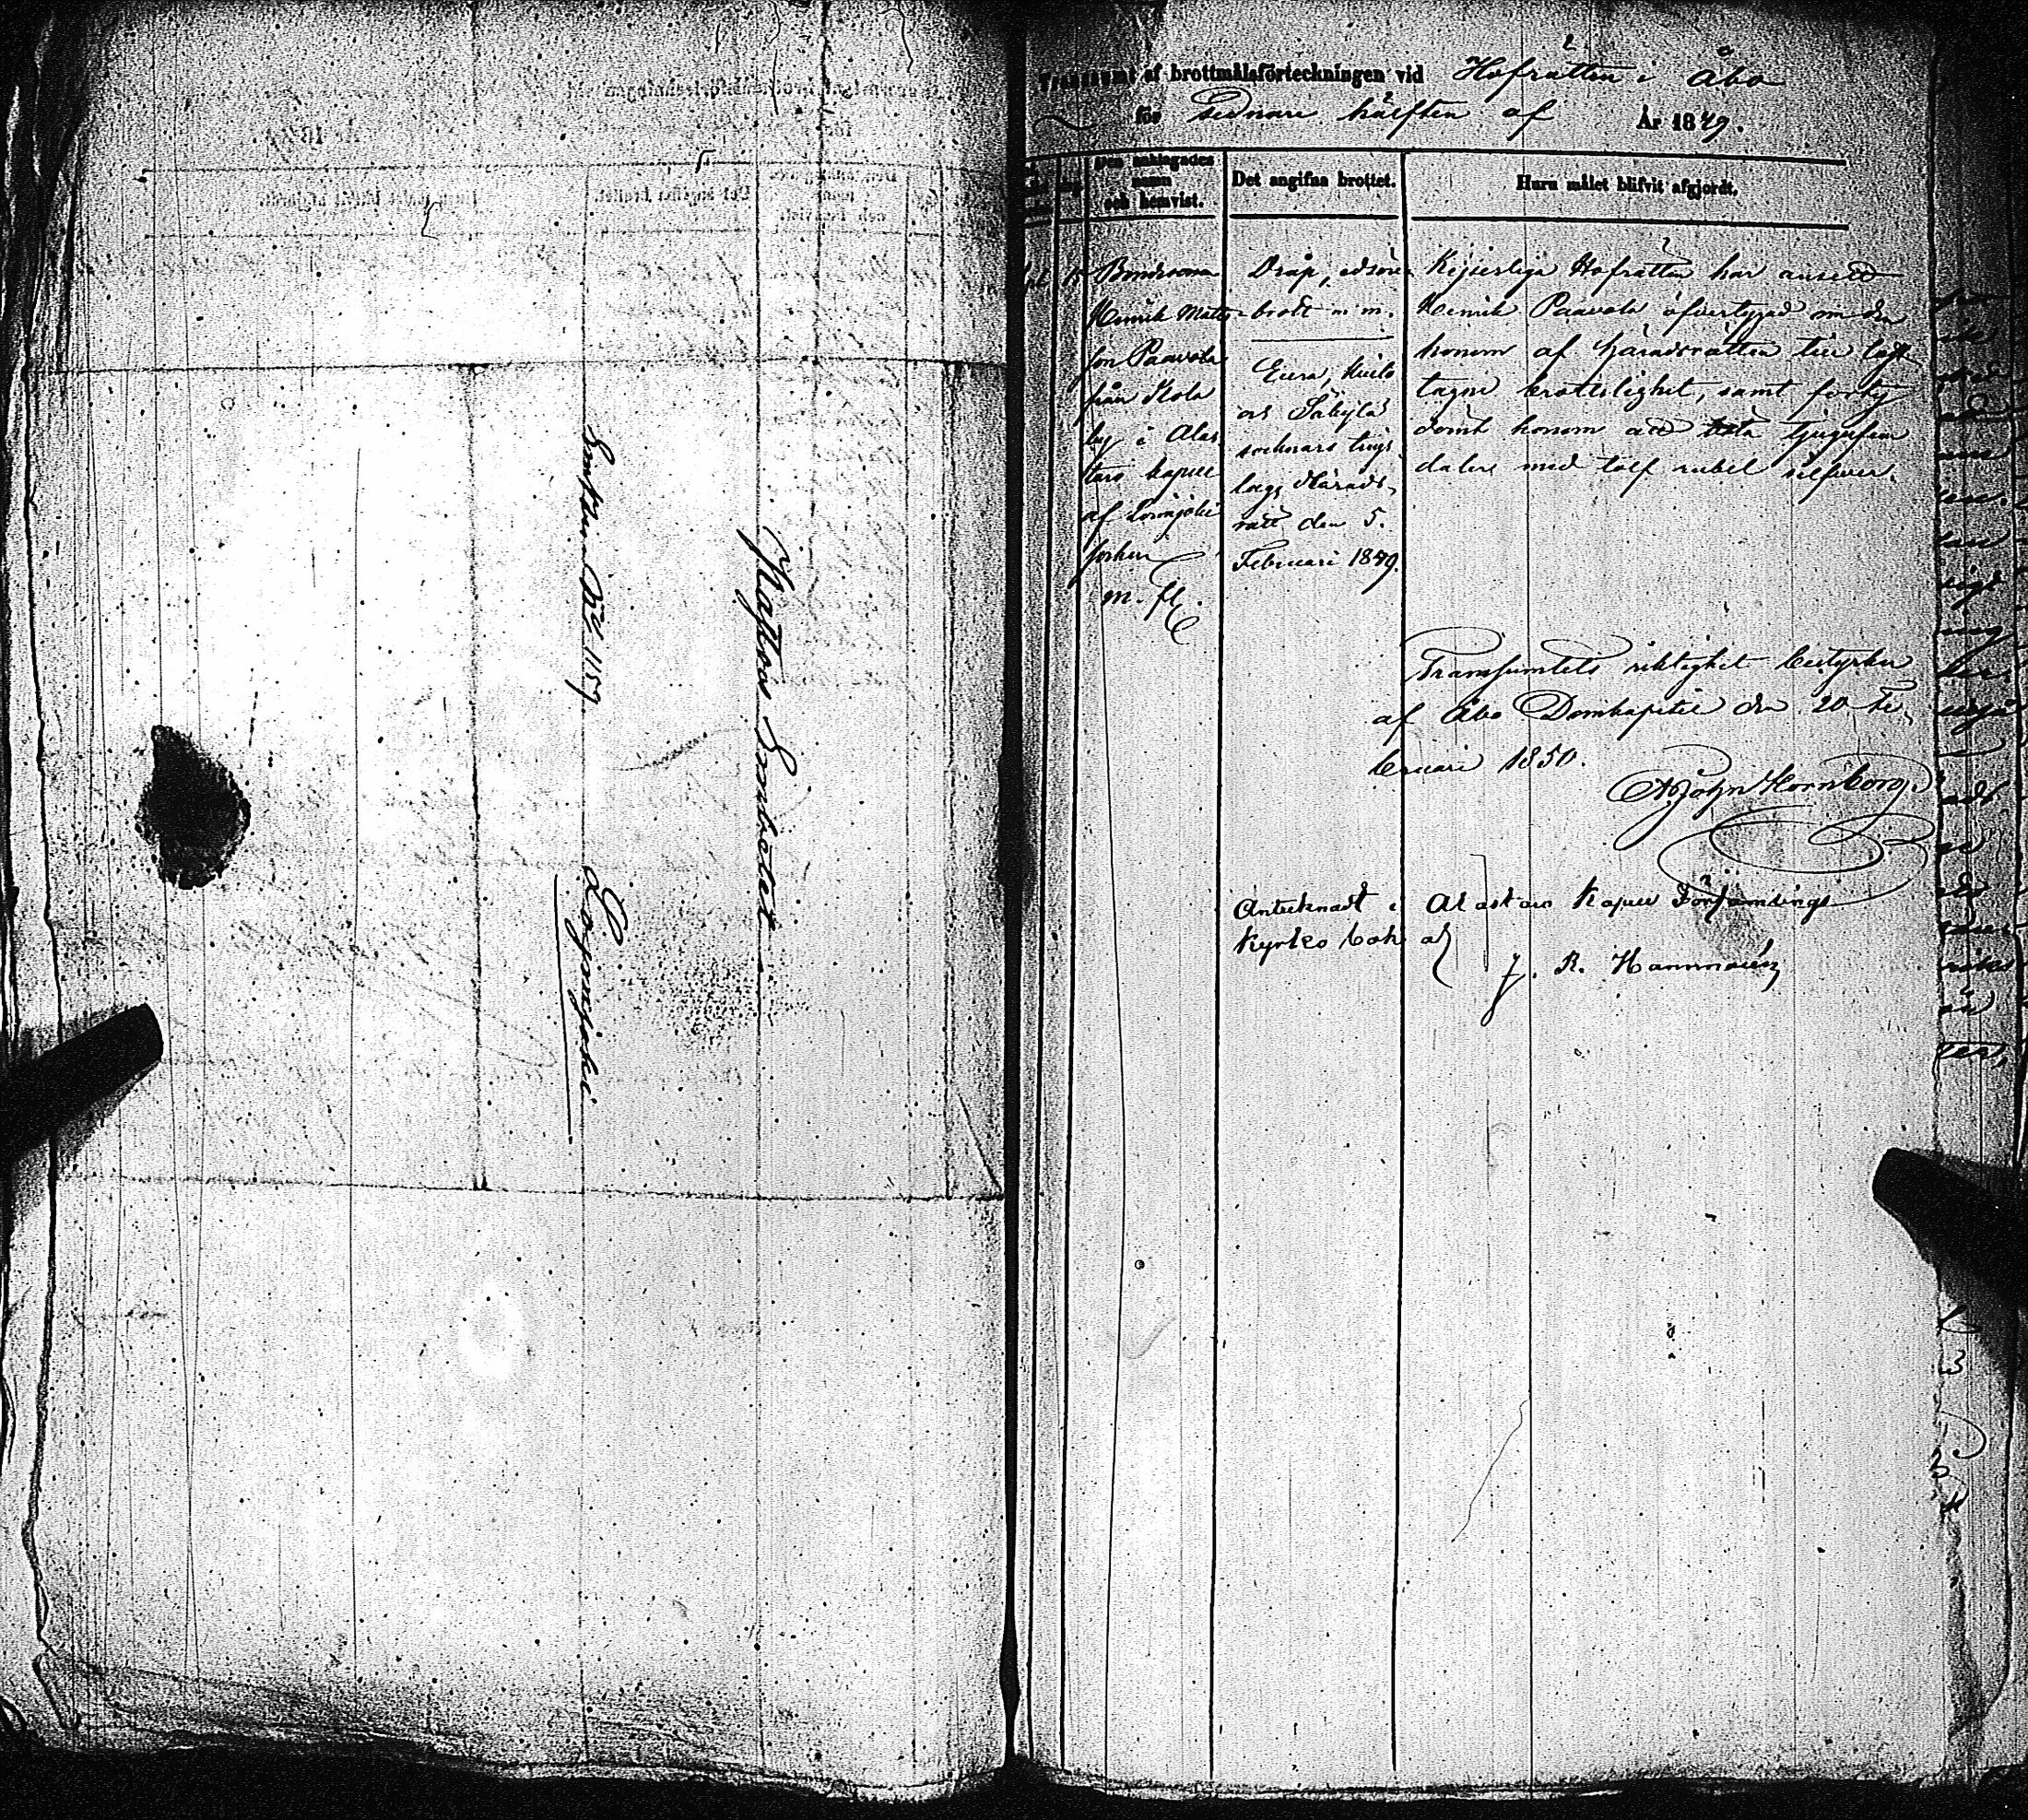 Kyrkoherde Embetet
Loimijoki
Transsumt af brottmålsförteckningen vid Hofrätten i Åbo
för sednare hälften af År 1849.
Den anklagades
namn
och hemvist.
Det angifna brottet.
Huru målet blifvit afgjordt.
Bondesonen
Henrik Matts-
son Paavola
från Kola
by i Alas-
taro kapell
af Loimjoki
socken
m. fl.
Dråp, edsöres-
brott m. m.
Eura, Kiulo
och Säkylä
socknars tings-
lags Härads-
rätt den 5.
Februari 1849.
Kejserliga Hofrätten har ansett
Henrik Paavola öfvertygad om den
honom af Häradsrätten till last
tagne brottslighet, samt förty
dömt honom att böta tjugufem
daler med tolf rubel silfver.
Transsumtets riktighet bestyrker
af Åbo Domkapitel den 20 Fe-
bruari 1850.
John Hornborg.
Antecknadt i Alastaro Kapell Församlings
Kyrko bok af
J. R. Hammarén